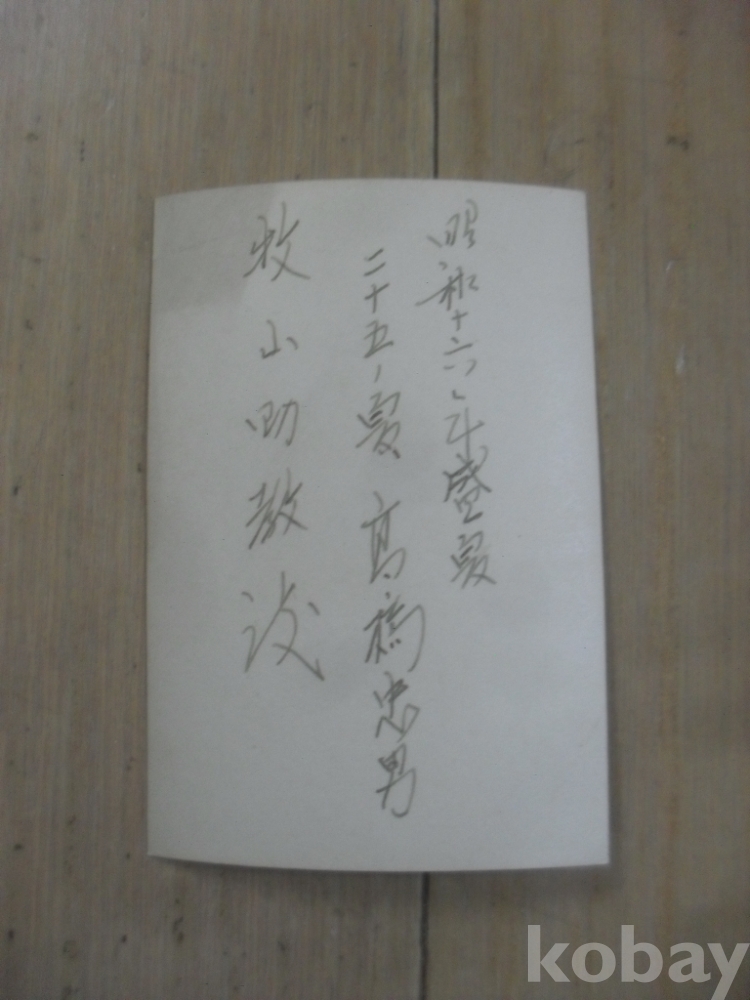 昭和十六年盛夏
二十五ノ夏 高橋忠男
牧山助教授
kobay